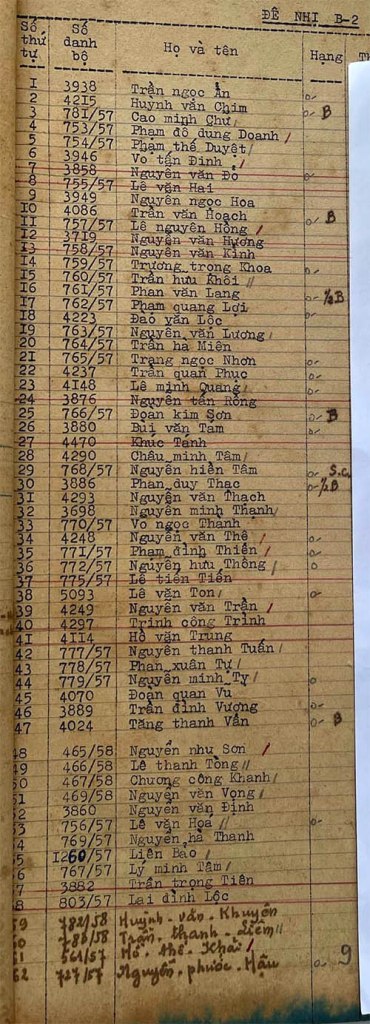 ĐỆ NHỊ B-2
Số thứ tự Số danh bộ Họ và tên Hạng
1 3938 Trần ngọc Ẩn
2 4215 Huỳnh văn Chim
3 781/57 Cao minh Chư B
4 753/57 Phạm đỗ dung Doanh
5 754/57 Phạm thế Duyệt
6 3946 Võ tấn Định
7 3858 Nguyễn văn Đỏ
8 755/57 Lê văn Hai
9 3949 Nguyễn ngọc Hoa
10 4086 Trần văn Hoạch
11 757/57 Lê nguyên Hồng B
12 3719 Nguyễn văn Hương
13 758/57 Nguyễn văn Kinh
14 759/57 Trương trọng Khoa
15 760/57 Trần hưu Khôi
16 761/57 Phan văn Lang
17 762/57 Phạm quang Lợi ½B
18 4223 Đào văn Lộc
19 763/57 Nguyễn văn Lương
20 764/57 Trần hà Miên
21 765/57 Trang ngọc Nhơn
22 4237 Trần quan Phục
23 4148 Lê minh Quang
24 3876 Nguyễn tấn Rồng
25 766/57 Đoàn kim Sơn B
26 3880 Bùi văn Tám
27 4470 Khúc Tánh
28 4290 Châu minh Tâm
29 768/57 Nguyễn hiền Tâm S.C.
30 3886 Phan duy Thac ½B
31 4293 Nguyễn văn Thạch
32 3698 Nguyễn minh Thạnh
33 770/57 Võ ngọc Thành
34 4248 Nguyễn văn Thê
35 771/57 Phạm đình Thiến
36 772/57 Nguyễn hưu Thông
37 775/57 Lê tiến Tiến
38 5093 Lê văn Ton
39 4249 Nguyễn văn Trân
40 4297 Trịnh công Trinh
41 4114 Hồ văn Trung
42 777/57 Nguyễn thanh Tuấn
43 778/57 Phan xuân Tự
44 779/57 Nguyễn minh Tỵ
45 4070 Đoàn quan Vu
46 3889 Trần đình Vương
47 4024 Tăng thanh Vân B
48 465/58 Nguyễn như Sơn
49 466/58 Lê thanh Tòng
50 467/58 Chương công Khanh
51 469/58 Nguyễn văn Vọng
52 3860 Nguyễn văn Định
53 756/57 Lê văn Hoa
54 769/57 Nguyễn hà Thanh
55 1260/57 Liên Bảo
56 767/57 Lý minh Tâm
57 3882 Trần trọng Tiên
58 803/57 Lai đình Lộc
59 782/58 Huỳnh văn Khuyên
60 Trần thanh Liêm
61 561/57 Hồ thế Khải
62 727/57 Nguyễn phước Hậu
9